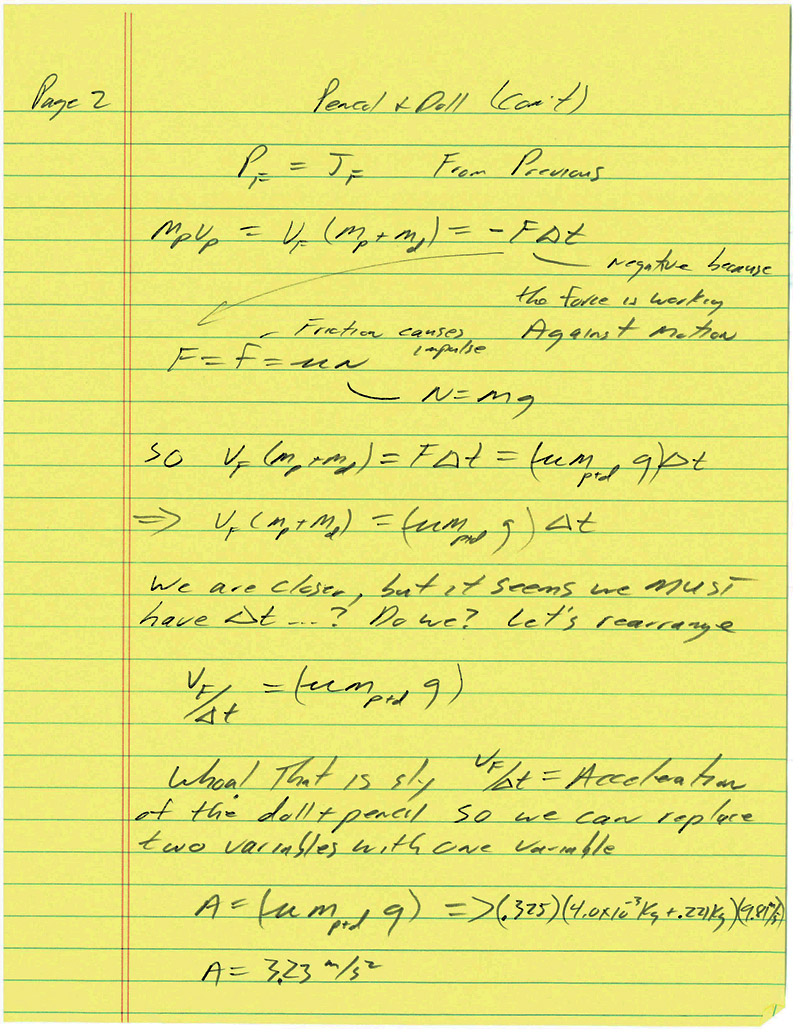 Page 2 Pencil + Doll (con't)
P_F = J_F From Previous
m_p v_p = V_F (m_p + m_d) = - F Δt
negative because
the force is working
Against motion
Friction causes
impulse
F = f = μN
N = mg
so V_F (m_p + m_d) = F Δt = (μ m_p+d g) Δt
=> V_F (m_p + m_d) = (μ m_p+d g) Δt
We are closer, but it seems we MUST
have Δt ...? Do we? Let's rearrange
V_F/Δt = (μ m_p+d g)
Whoa! That is sly V_F/Δt = Acceleration
of the doll + pencil so we can replace
two variables with one variable
A = (μ m_p+d g) => (.325)(4.0x10^-3 Kg + .221Kg)(9.81 m/s²)
A = 3.23 m/s²